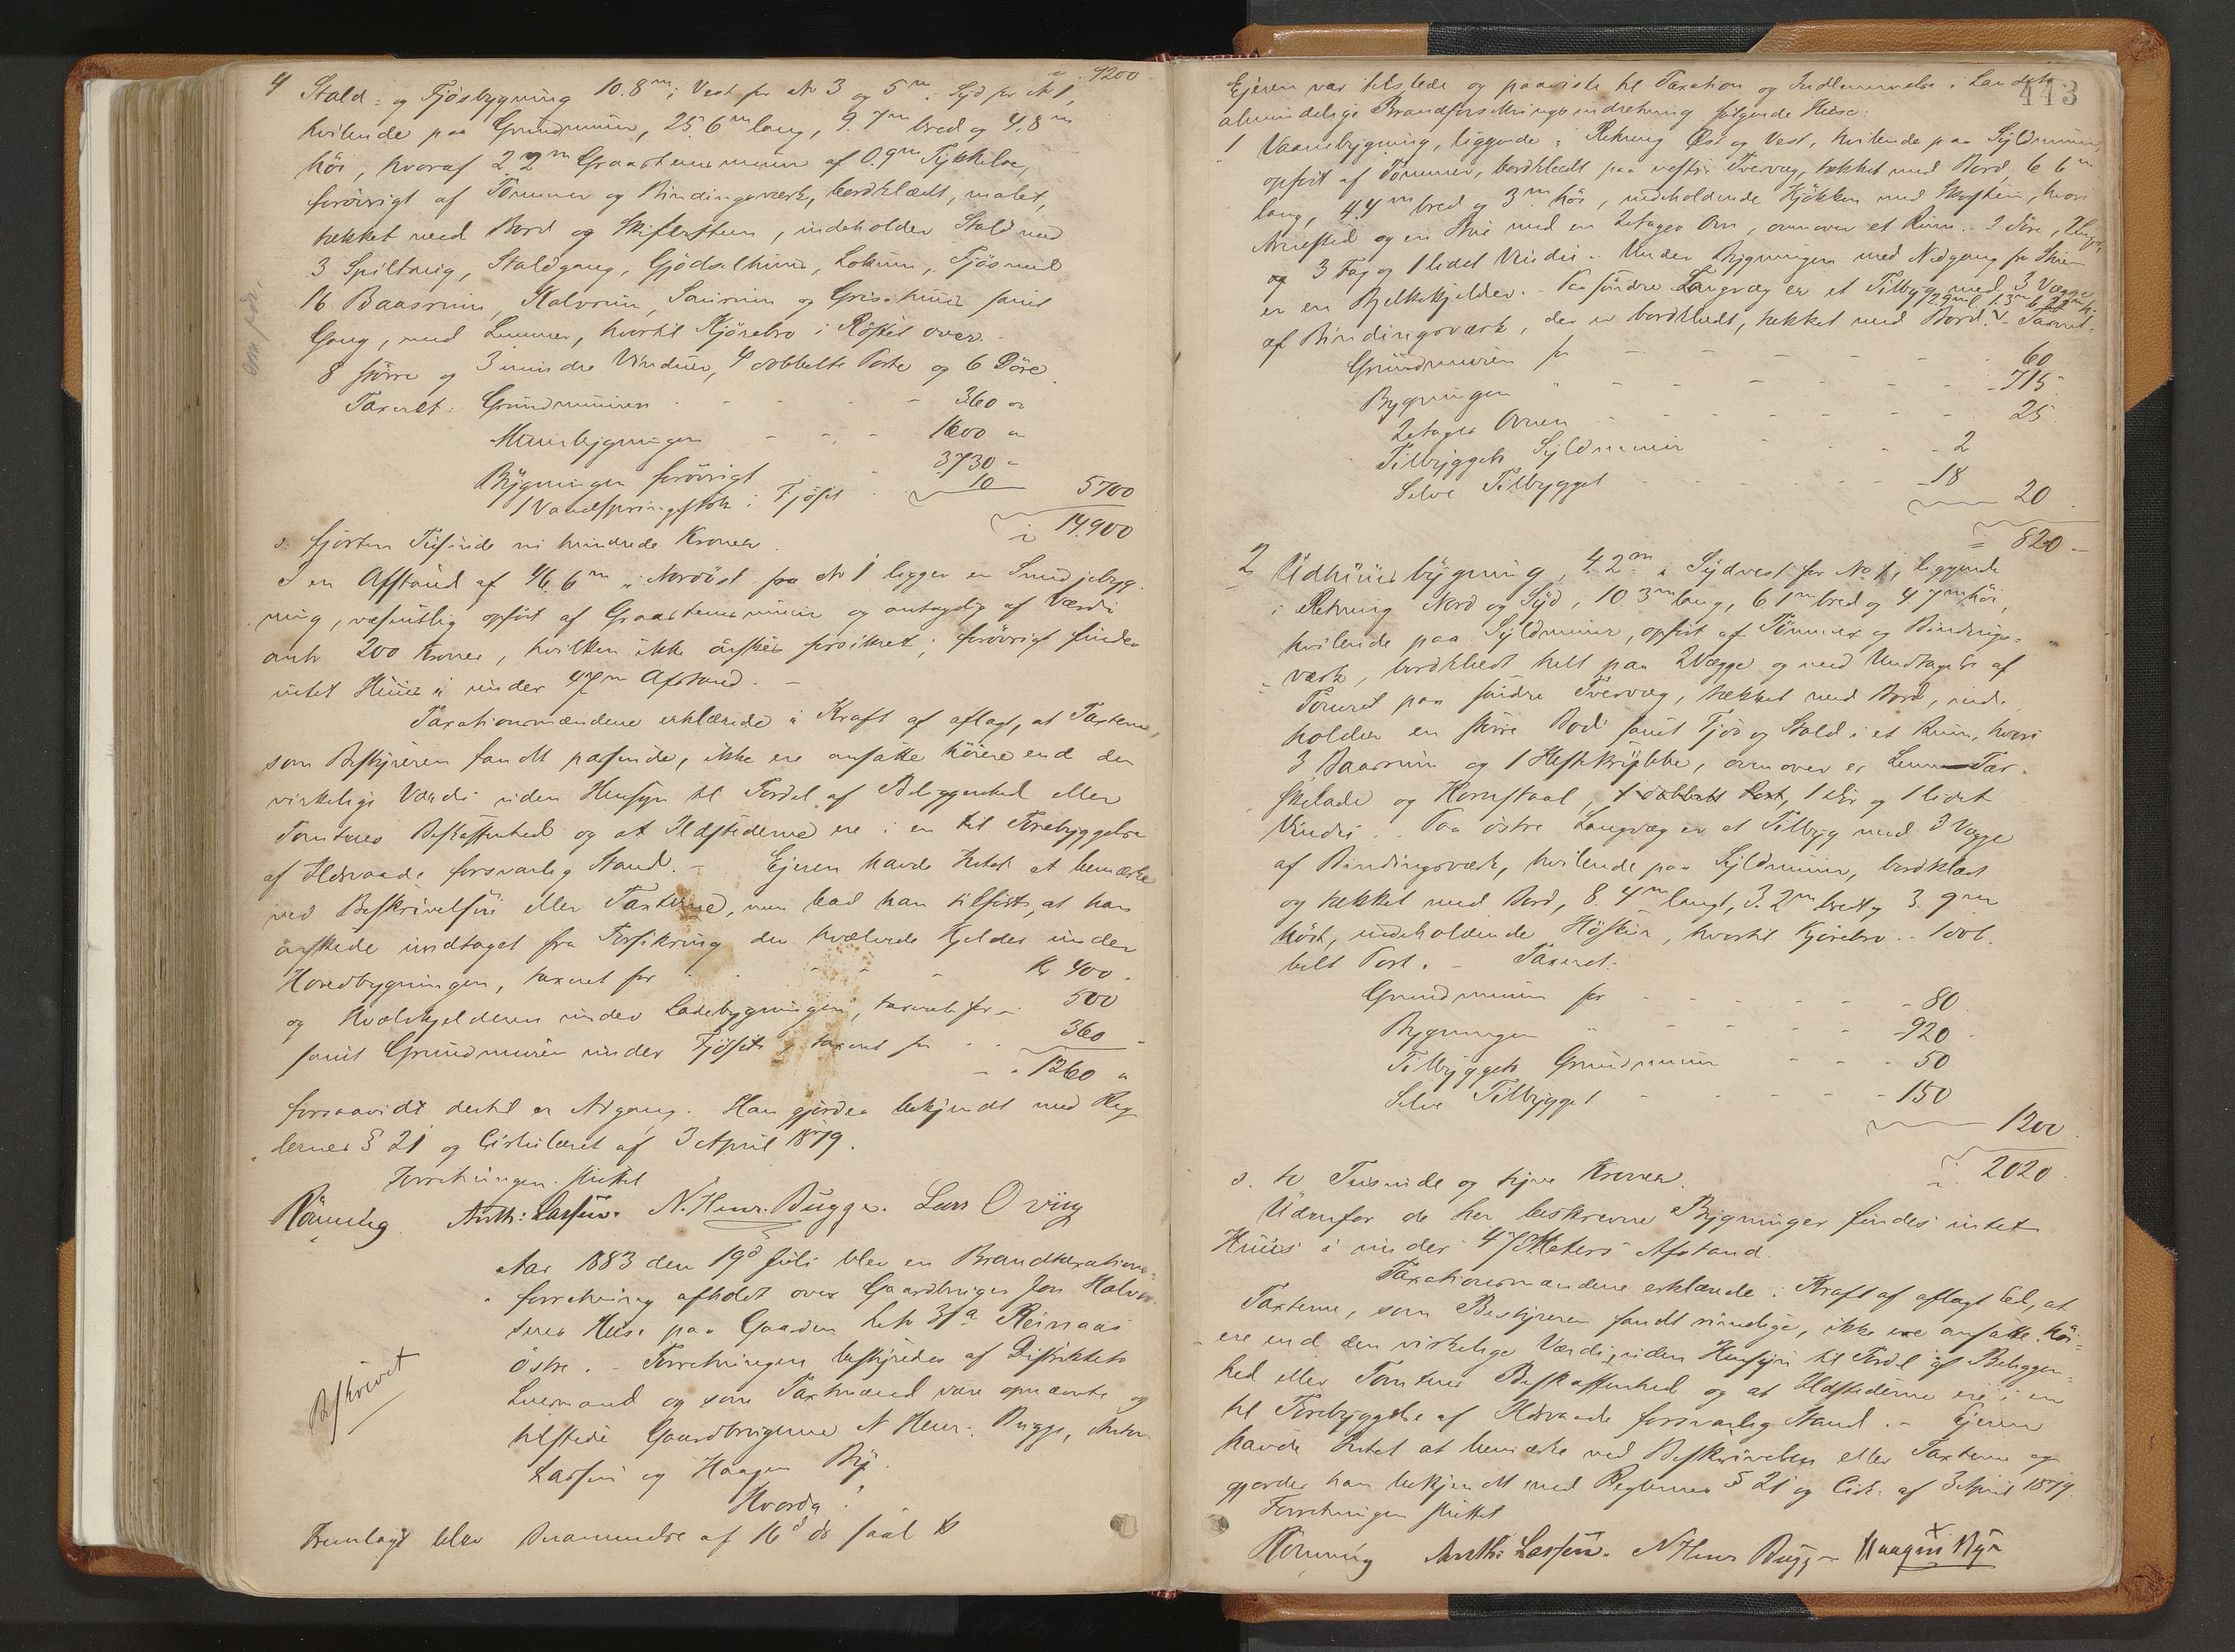 " 9200
4 Stald- og Fjösbygning 10.8m i Vest for No 3 og 5m i Syd for No 1,
hvilende paa Grundmuur, 25.6m lang, 9.7m bred og 4.8m
höi, hvoraf 2.2m Graasteensmuur af 0.9m Tykkelse,
forövrigt af Tömmer og Bindingsværk, bordklædt, malet,
tækket med Bord og Skifersteen, indeholder Stald med
3 Spiltoug, Staldgang, Gjödselhuus, Lokum, Fjös med
16 Baasrum, Kalverum, Saurum og Grisehuus samt
Gang, med Lemmer, hvortil Kjörebro i Röstet over.
8 större og 3 mindre Vinduer, 4 dobbelte Porte og 6 Döre
Taxeret: Grundmuuren - - - 360 "
Muurbygningen - - - 1600 "
Bygningen forövrigt 3730 "
1 Vandspringstok i Fjöset 10 5700
14.900
s. fjorten Tusinde ni hundrede Kroner.
I en Afstand af 46.6m i Nordöst fra No 1 ligger en Smidjebyg-
ning, væsentlig opfört af Graasteensmuur og antagelig af Værdi
omtr 200 Kroner, hvilken ikke önskes forsikret; forövrigt findes
intet Huus i under 47m Afstand. -
Taxationsmændene erklærede i Kraft af aflagt, at Taxterne,
som Bestyreren fandt passende, ikke ere ansatte höiere end den
virkelige Værdi uden Hensyn til Fordel af Beliggenhed eller
Tomternes Beskaffenhed og at Ildstederne ere i en til Forebyggelse
af Ildsvaade forsvarlig Stand. - Ejeren havde Intet at bemærke
ved Beskrivelsen eller Taxterne, men bad han tilfört, at han
önskede undtaget fra Forsikring den hvælvede Kjelder under
Hovedbygningen, taxeret for - - - Kr 400.
og Hvælvkjelderen under Ladebygningen, taxeret for - 500
samt Grundmuren under Fjöset, taxeret for - - 360
- - 1260 "
forsaavidt dertil er Adgang. Han gjordes bekjendt med Reg-
lernes § 21 og Cirkulæret af 3 April 1879.
Forretningen sluttet
Rönning Anth: Lassen. N. Henr. Bugge. Lars Oving
Aar 1883 den 19d Juli blev en Brandtaxations-
forretning afholdt over Gaardbruger Jon Halvor-
sens Huse paa Gaarden
Östre. - Forretningen bestyredes af Distriktets
Lensmand og som Taxtmænd vare opnævnte og
tilstede Gaardbrugerne N Henr. Bugge, Anton
Lassen og Haagen By.
Beskrevet
Hvorda:
Fremlagt blev Anmeldelse af 16d ds saal
443
Ejeren var tilstede og paaviste til Taxation og Indlemmelse i Landets
almindelige Brandforsikringsindretning fölgende Huse:
1 Vaaningsbygning, liggende i Retning Öst og Vest, hvilende paa Syldmuur,
opfört af Tömmer, bordklædt paa vestre Tvervæg, tækket med Bord, 6.6m
lang, 4.4m bred og 3m höi, indeholdende Kjökken med Skorsteen, hvori
Arnested og en Stue med en 2etages Ovn, ovenover et Rum. 2 Döre, 2
og 3 Fag og 1 lidet Vindue. Under Bygningen med Nedgang fra Stuen
er en Bjelkekjelder. - Paa söndre Langvæg er et Tilbyg med 3 Vægge
af Bindingsværk, der er bordklædt, tækket med Bord. - Taxeret.
Grundmuuren for - - - 60
Bygningen " - - - 715
2etages Ovnen - - - 25
Tilbyggets Syldmuur - - - 2
Selve Tilbygget - - - 18 20
820 -
2 Udhuusbygning, 4.2m i Sydvest for No 1, liggende
i Retning Nord og Syd, 10.3m lang, 6.1m bred og 4.7m höi,
hvilende paa Syldmuur, opfört af Tömmer og Bindings-
værk, bordklædt helt paa 2 Vægge og med Undtagelse af
Förerst paa söndre Tvervæg, tækket med Bord, inde-
holder en större Bod samt Fjös og Stald i et Rum, hvori
3 Baasrum og 1 Hestekrybbe, ovenover er Lem Tær-
skelade og Kornstaal, 1 dobbelt Port, 1 Dör og 1 lidet
Vindue. Paa östre Langvæg er et Tilbyg med 3 Vægge
af Bindingsværk, hvilende paa Syldmuur, bordklædt
og tækket med Bord, 8.4m langt, 3.2m bredt og 3.9m
höit, indeholdende Höskur, hvortil Kjörebro. 1 dob-
belt Port. - Taxeret.
Grundmuren for - - - 80
Bygningen " - - - 920
Tilbyggets Grundmuur - - - 50
Selve Tilbygget - - - 150
1200
2020
s. to Tusinde og tyve Kroner.
Udenfor de her beskrevne Bygninger findes intet
Huus i under 47 Meters Afstand.
Taxationsmændene erklærede i Kraft af aflagt Ed, at
Taxterne, som Bestyreren fandt rimelige, ikke ere ansatte höi-
ere end den virkelige Værdi, uden Hensyn til Fordel af Beliggen-
hed eller Tomternes Beskaffenhed og at Ildstederne ere i en
til Forebyggelse af Ildsvaade forsvarlig Stand. - Ejeren
havde Intet at bemærke ved Beskrivelsen eller Taxterne og
gjordes han bekjendt med Reglernes § 21 og Cirk: af 3 April 1879.
Forretningen sluttet
Rönning Anth: Lassen. N Henr Bugge Haagen By